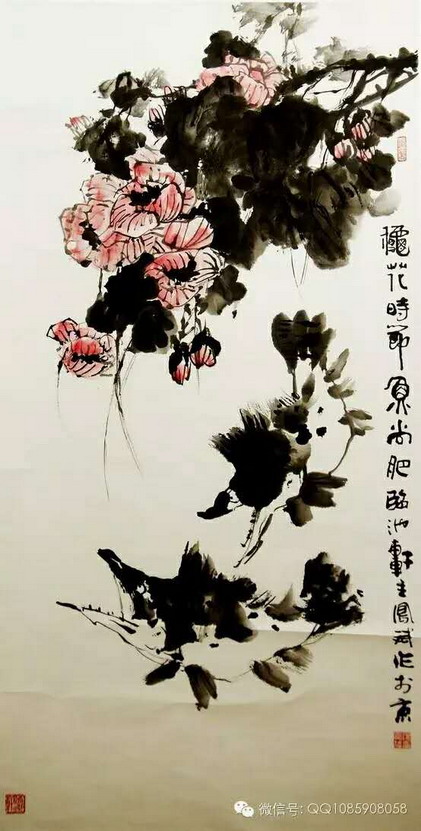 龝花時節魚尚肥臨池軒主鳳斌作於京
微信号: QQ1085908058